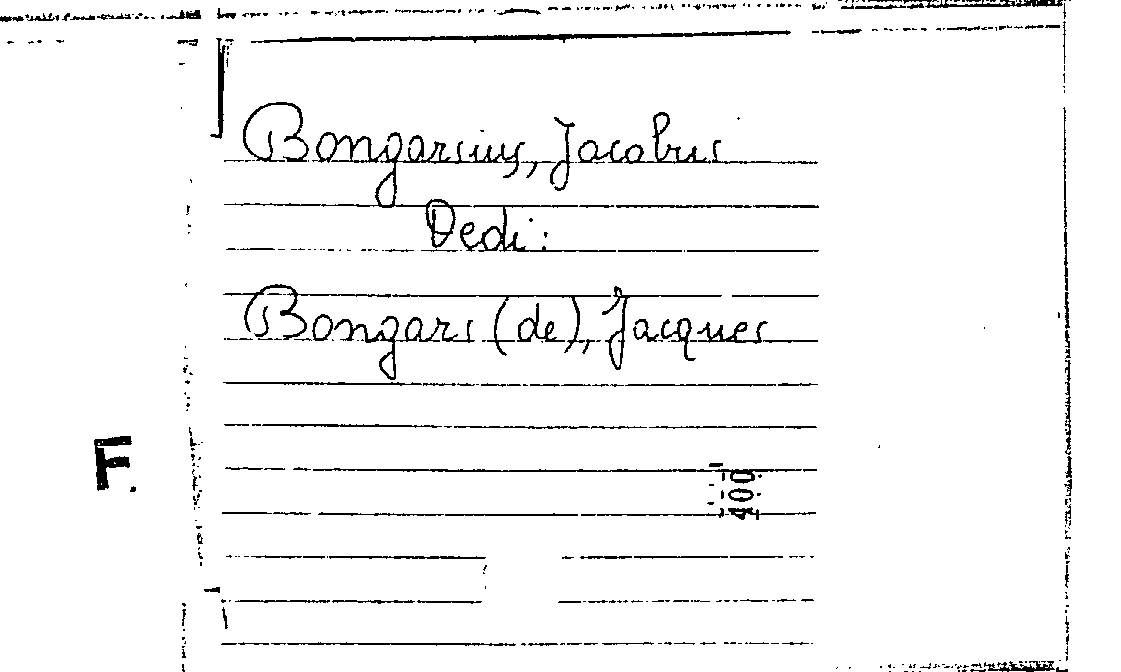 Bongarsius, Jacobus
Vedi:
Bongars (de), Jacques
F.
400